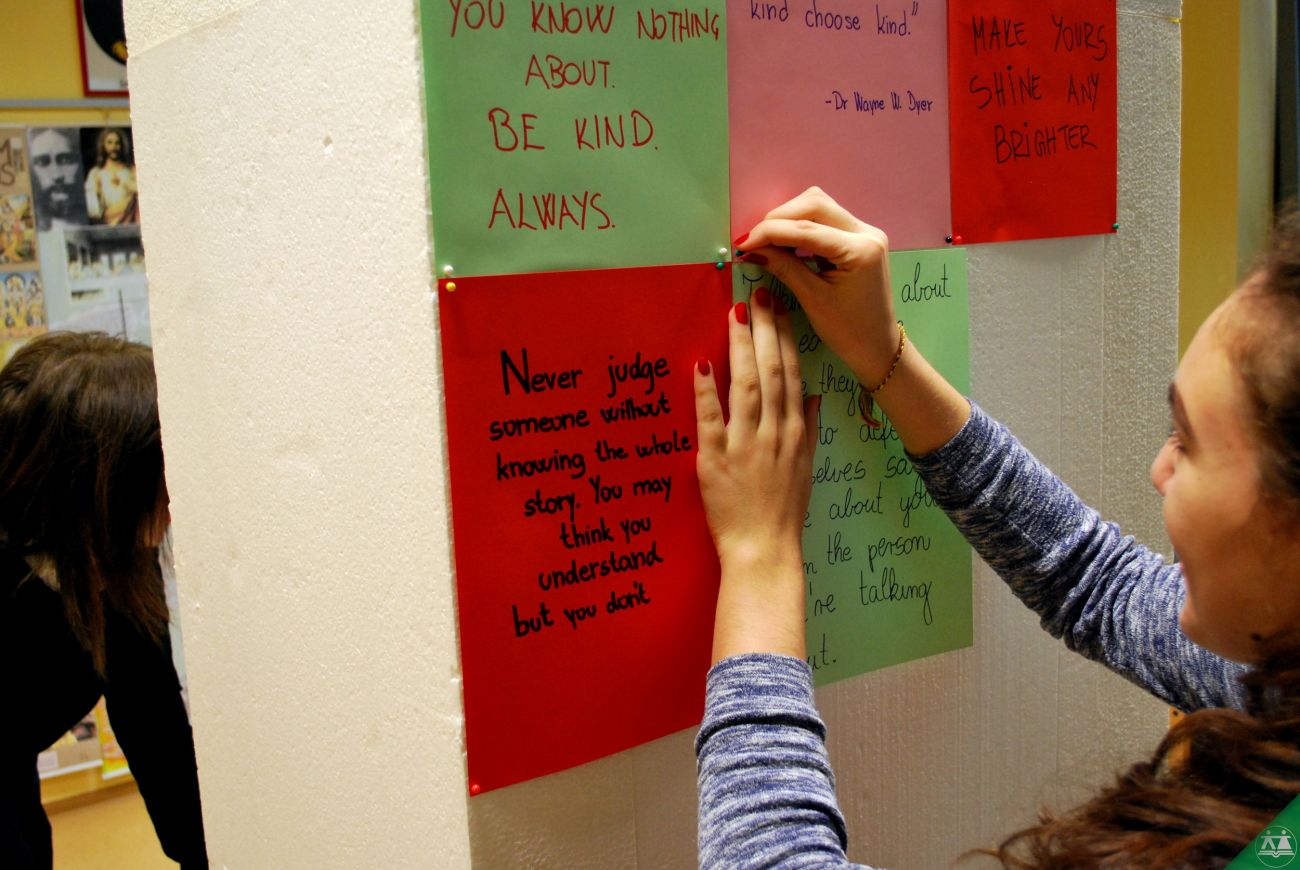 YOU KNOW NOTHING
ABOUT.
BE KIND.
ALWAYS.
kind choose kind."
-Dr Wayne W. Dyer
MAKE YOURS
SHINE ANY
BRIGHTER
Never judge
someone without
knowing the whole
story. You may
think you
understand
but you don't
about
they
to
about you
the person
talking